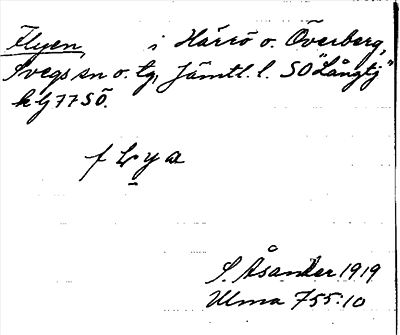 Flyen, i Härrö o. Överberg,
Svegs sn o. tg, Jämtl. l. SO "Långtj"
kbl 77 SÖ.
fLya
S. Åsander 1919
Ulma 755:10